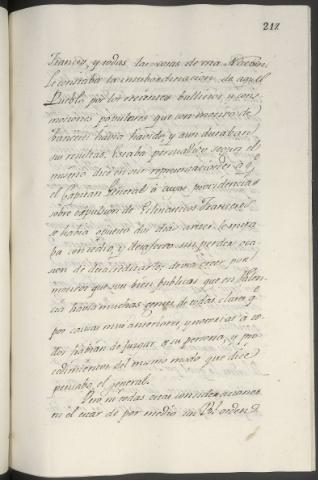 217
Frances, y todas las cosas de esta Nacion.
Le constaba la insubordinacion de aquel
Pueblo por los recientes bullicios, y con-
mociones populares que con motivo de
franceses havia havido, y aun duraban
sus resultas. Estaba persuadido segun el
mismo dice en sus representaciones a qe
el Capitan General a cuyas providencias
sobre expulsion de Eclesiasticos Franceses
se havia opuesto dias antes, le mira
ba con tedio, y desafecto sin perder oca
sion de desacreditarle; devia creer por
motivos que son bien publicos que en Valen-
cia havia muchas gentes de todas clases qe
por causas mui anteriores, y notorias à to-
dos habian de juzgar a su persona, y pro-
cedimientos del mismo modo que dice
pensaba el general.
Pero ni todas estas consideraciones
ni el estar de por medio un Rl. orden de